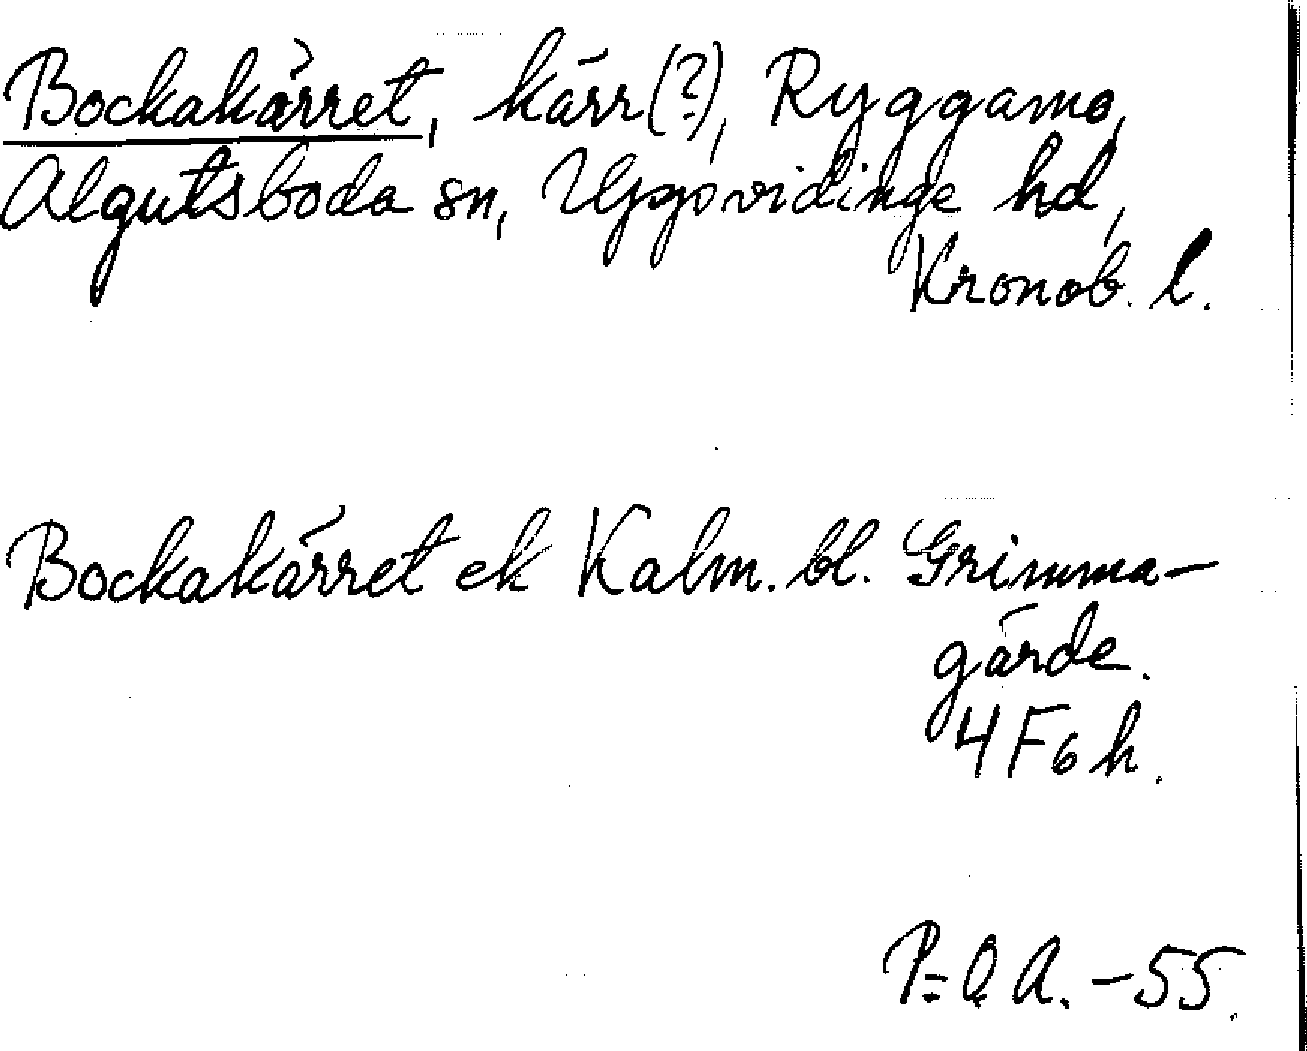 Bockakärret, kärr(?), Ryggamo,
Algutsboda sn, Uppvidinge hd,
Kronob. l.
Bockakärret ek Kalm. bl. Grimma-
gärde.
4 F 6 h.
P=O A. -55.